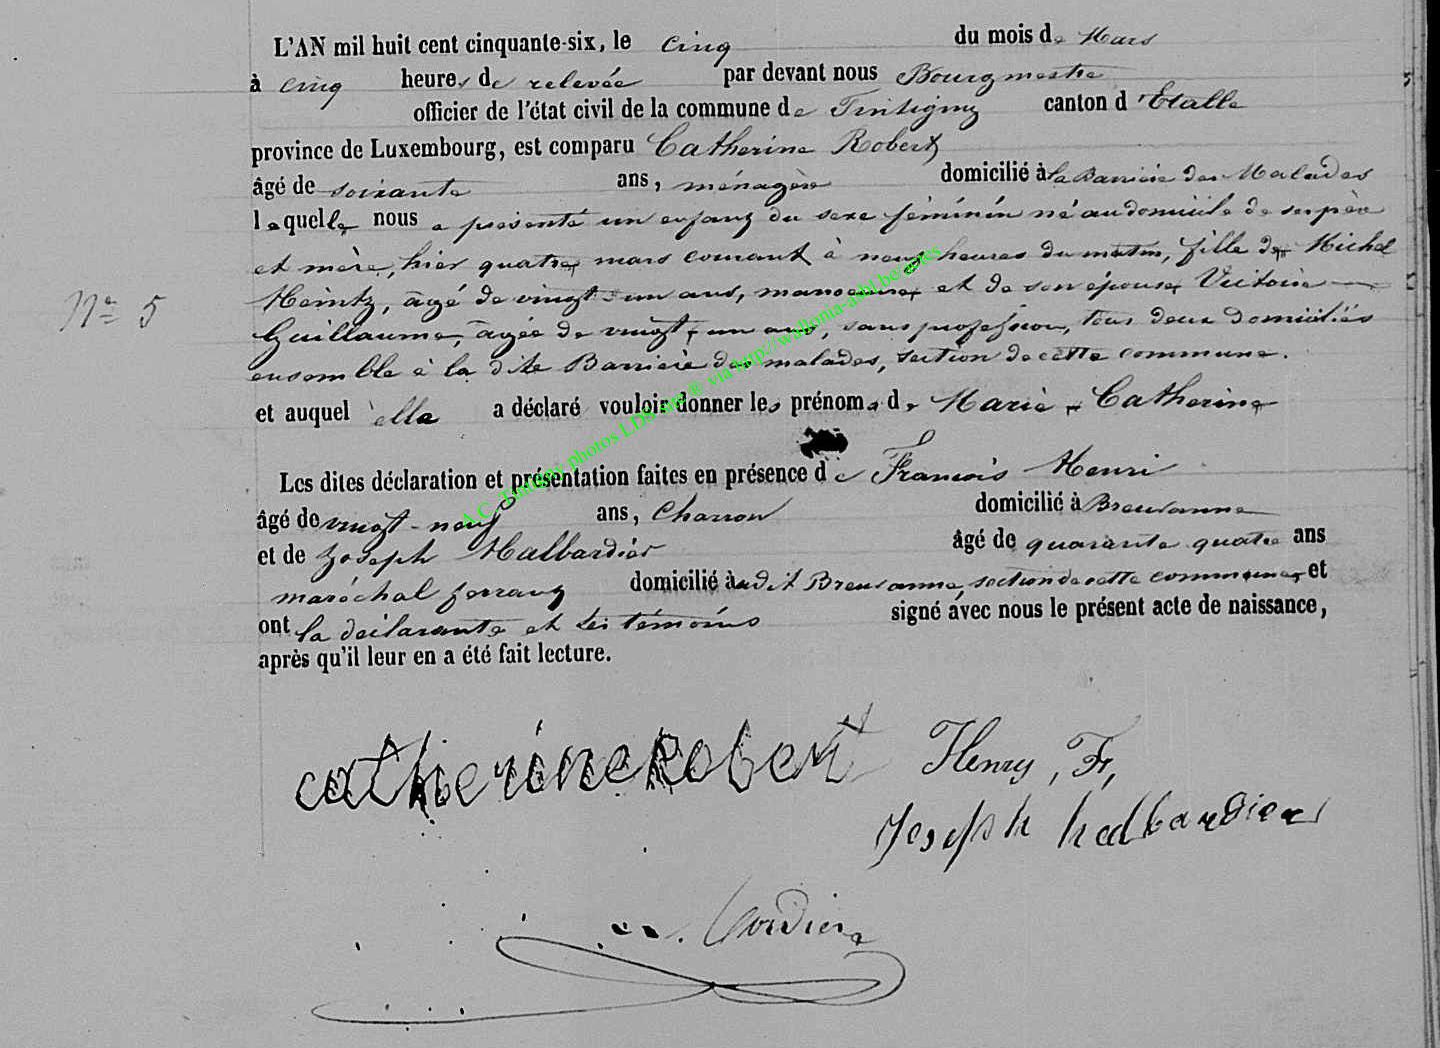 L'AN mil huit cent cinquante-six, le cinq du mois de Mars
à cinq heures de relevée par devant nous Bourgmestre
officier de l'état civil de la commune de Tintigny canton d'Etalle
province de Luxembourg, est comparu Catherine Robert
âgé de soixante ans, ménagère domicilié à la Barrière des Malades
laquelle nous a présenté un enfant du sexe féminin né au domicile de ses père
et mère, hier quatre mars courant à neuf heures du matin, fille de Michel
Nº 5
Heintz, âgé de vingt-un ans, manoeuvre et de son épouse Victoire
Guillaume, âgée de vingt-un ans, sans profession, tous deux domiciliés
ensemble à la dite Barrière des malades, section de cette commune.
et auquel elle a déclaré vouloir donner les prénoms de Marie-Catherine
Les dites déclaration et présentation faites en présence de François Henri
âgé de vingt-neuf ans, Charron domicilié à Breuvanne
et de Joseph Halbardier âgé de quarante quatre ans
maréchal ferrant domicilié audit Breuvanne, section de cette commune, et
ont la déclarante et les témoins signé avec nous le présent acte de naissance,
après qu'il leur en a été fait lecture.
catherine Robert Henry, Fr,
Joseph halbardier
Cordier
A.C. Tintigny photos LDS sur ® via http://wallonia-asbl.be/actes